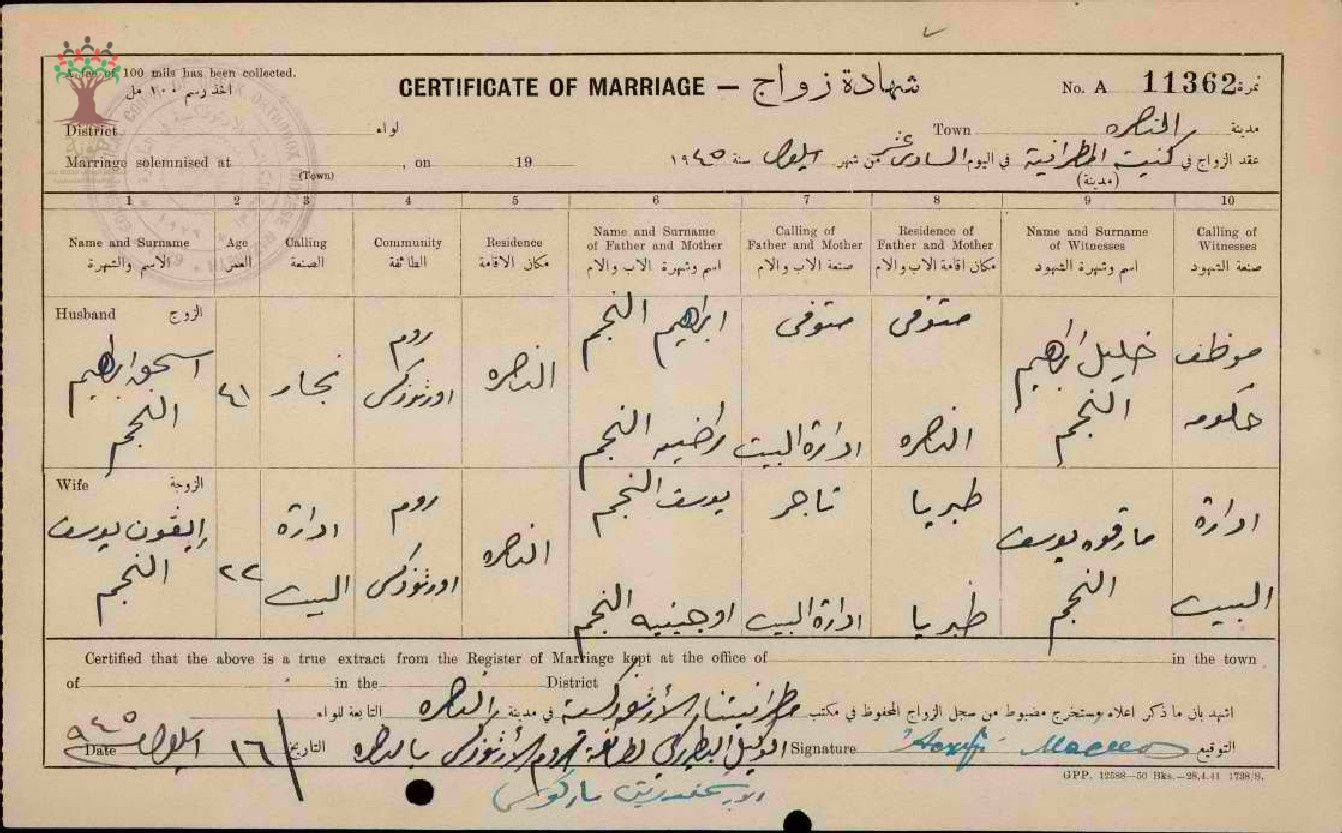 A fee of 100 mils has been collected.
اخذ رسم ١٠٠ مل
CERTIFICATE OF MARRIAGE — شهادة زواج
No. A 11362 نمرة
District لواء
Town الناصره مدينة
Marriage solemnised at , on 19
(Town)
عقد الزواج في كنيسة المطرانية في اليوم السادس عشر من شهر ايلول سنة ١٩٤٥
(مدينة)
1 2 3 4 5 6 7 8 9 10
Name and Surname
الاسم والشهرة
Age
العمر
Calling
الصنعة
Community
الطائفة
Residence
مكان الاقامة
Name and Surname
of Father and Mother
اسم وشهرة الاب والام
Calling of
Father and Mother
صنعة الاب والام
Residence of
Father and Mother
مكان اقامة الاب والام
Name and Surname
of Witnesses
اسم وشهرة الشهود
Calling of
Witnesses
صنعة الشهود
Husband الزوج
اسحق ابراهيم
النجم
٤١
نجار
روم
اورثوذكس
الناصره
ابراهيم النجم
راضيه النجم
متوفى
ادارة البيت
متوفى
الناصره
خليل ابراهيم
النجم
موظف
حكومه
Wife الزوجة
يوسف
النجم
٢٢
ادارة
البيت
روم
اورثوذكس
الناصره
يوسف النجم
اوجينيه النجم
تاجر
ادارة البيت
طبريا
طبريا
يوسف
النجم
ادارة
البيت
Certified that the above is a true extract from the Register of Marriage kept at the office of in the town
of in the District
اشهد بأني ما ذكر اعلاه مستخرج مضبوط من سجل الزواج المحفوظ في مكتب مطرانيتنا الأرثوذكسية في مدينة الناصره التابعة للواء
التوقيع Signature الوكيل البطريركي لطائفة الروم الأرثوذكس بالناصره
التاريخ ١٦ ايلول ٩٤٥ Date
GPP. 12588—50 Bks.—28.4.41 1798/S.